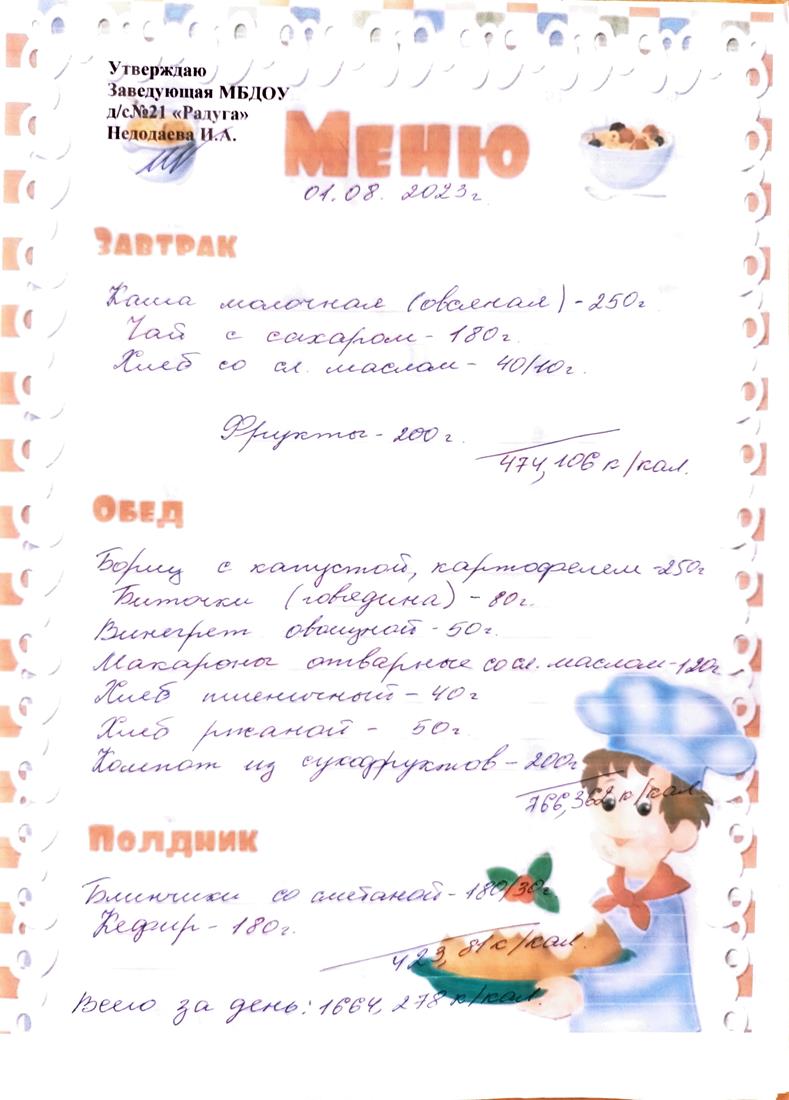 Утверждаю
Заведующая МБДОУ
д/с№21 «Радуга»
Недодаева И.А.
Меню
01.08. 2023г.
Завтрак
Каша молочная (овсяная) - 250г.
Чай с сахаром - 180г.
Хлеб со сл. маслом - 40/10г.
Фрукты - 200г.
474,106 к/кал.
Обед
Борщ с капустой, картофелем - 250г
Биточки (говядина) - 80г.
Винегрет овощной - 50г.
Макароны отварные со сл. маслом - 120г
Хлеб пшеничный - 40г
Хлеб ржаной - 50г.
Компот из сухофруктов - 200г
766,362 к/кал.
Полдник
Блинчики со сметаной - 180/30г
Кефир - 180г.
423,81 к/кал.
Всего за день: 1664,278 к/кал.